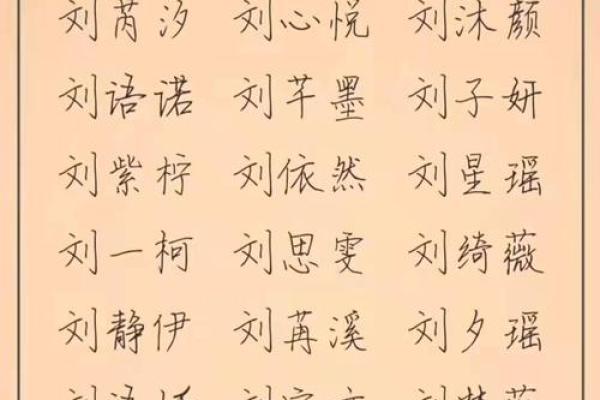 刘芮汐 刘心悦 刘沐颜
刘语诺 刘芊墨 刘子妍
刘紫柠 刘依然 刘星瑶
刘一柯 刘思雯 刘绮薇
刘静伊 刘苒溪 刘夕瑶